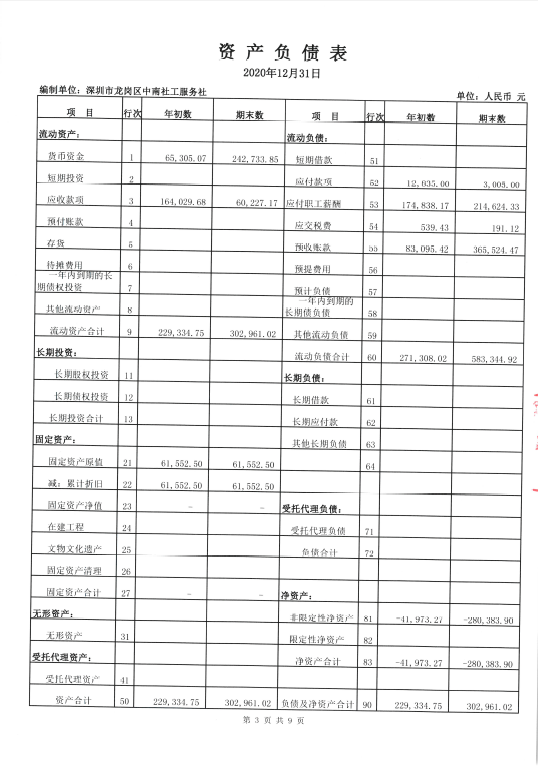 资产负债表
2020年12月31日
编制单位：深圳市龙岗区中南社工服务社 单位：人民币 元
项 目 行次 年初数 期末数 项 目 行次 年初数 期末数
流动资产： 流动负债：
货币资金 1 65,305.07 242,733.85 短期借款 51
短期投资 2 应付款项 52 12,835.00 3,005.00
应收款项 3 164,029.68 60,227.17 应付职工薪酬 53 174,838.17 214,624.33
预付账款 4 应交税费 54 539.43 191.12
存货 5 预收账款 55 83,095.42 365,524.47
待摊费用 6 预提费用 56
一年内到期的长期债权投资 7 预计负债 57
其他流动资产 8 一年内到期的长期债负债 58
流动资产合计 9 229,334.75 302,961.02 其他流动负债 59
长期投资： 流动负债合计 60 271,308.02 583,344.92
长期股权投资 11 长期负债：
长期债权投资 12 长期借款 61
长期投资合计 13 长期应付款 62
固定资产： 其他长期负债 63
固定资产原值 21 61,552.50 61,552.50 64
减：累计折旧 22 61,552.50 61,552.50
固定资产净值 23 - - 受托代理负债：
在建工程 24 受托代理负债 71
文物文化遗产 25 负债合计 72
固定资产清理 26
固定资产合计 27 - - 净资产：
无形资产： 非限定性净资产 81 -41,973.27 -280,383.90
无形资产 31 限定性净资产 82
受托代理资产： 净资产合计 83 -41,973.27 -280,383.90
受托代理资产 41
资产合计 50 229,334.75 302,961.02 负债及净资产合计 90 229,334.75 302,961.02
第 3 页 共 9 页